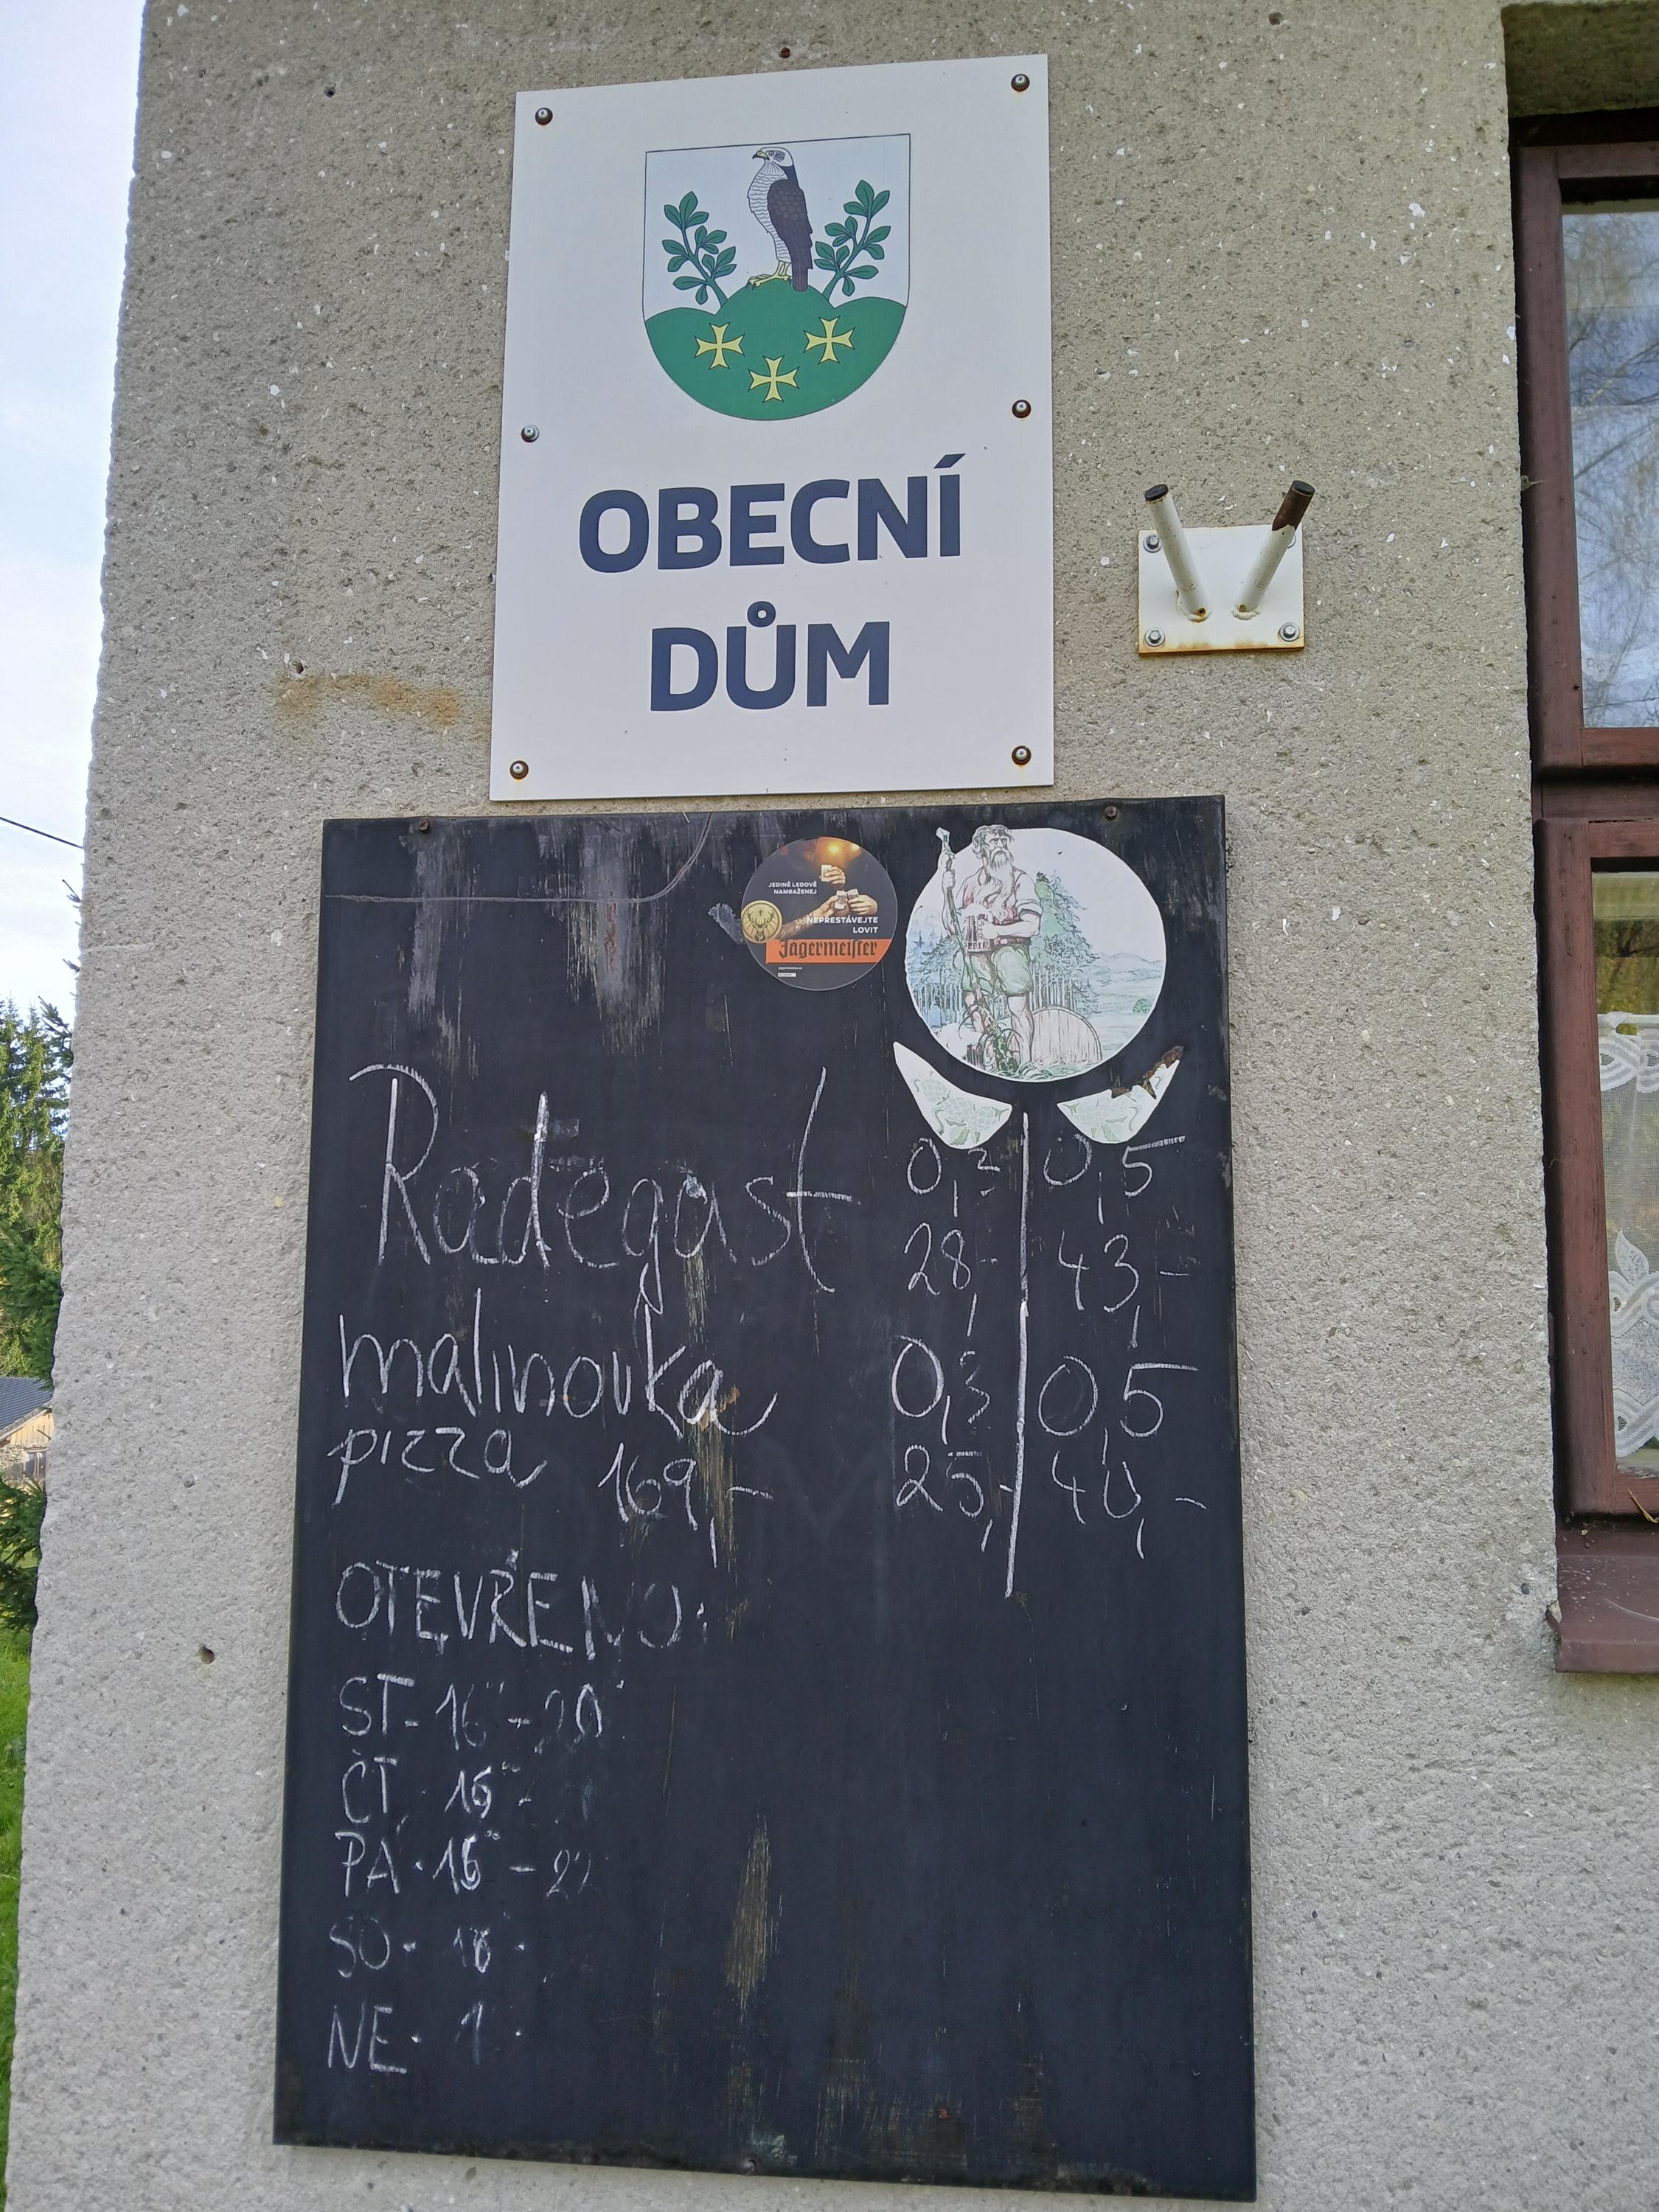 OBECNÍ
DŮM
JEDINĚ LEDOVĚ
NAMRAŽENEJ
NEPŘESTÁVEJTE
LOVIT
Jägermeister
Radegast 0,3 0,5
28,- 43,-
malinovka 0,3 0,5
pizza 169,- 25,- 40,-
OTEVŘENO:
ST- 16 - 20
ČT. 16 -
PÁ. 16 - 22
SO.
NE.